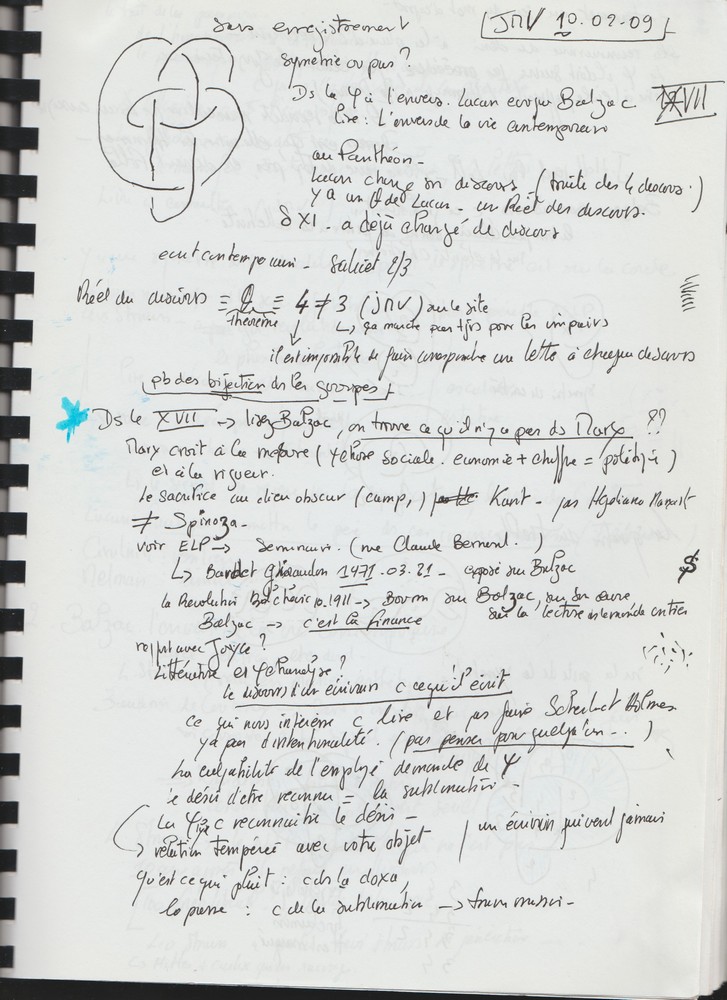 sans enregistrement
JMV 10.02.09
symétrie ou pas ?
Ds la ψ à l'envers. Lacan évoque Balzac
XVII
lire : L'envers de la vie contemporaine
au Panthéon -
Lacan change son discours (suite des 4 discours.)
Y a un de Lacan - un Réel des discours.
S XI - a déjà changé de discours
écrit contemporain - 2/3
Réel du discours ≡ ≡ 4 ≠ 3 (JMV) sur le site
théorème
↳ ça marche pas tjrs pour les impairs
il est impossible de faire correspondre une lettre à chaque discours
pb des bijection ds les groupes
Ds le XVII → lisez Balzac, on trouve ce qu'il n'y a pas ds Marx ??
Marx croit à la mesure ( sociale. économie + chiffre = )
et à la rigueur.
le sacrifice au dieu obscur (camp,) Kant - pas
≠ Spinoza -
voir ELP → Séminaire. (rue Claude Bernard.)
↳ Bardet 1471.03.21 - exposé sur Balzac
$
la Révolution → sur Balzac, sur son œuvre
sur la lecture
Balzac → c'est la finance
rapport avec Joyce ?
Littérature et ψchanalyse ?
le discours d'un écrivain c ce qu'il écrit
ce qui nous intéresse c lire et pas faire Sherlock Holmes
y a pas d'intentionalité. (pas penser pour quelqu'un ... )
La culpabilité de l'employé demande du ψ
le désir d'être reconnu = la sublimation -
La ψ c reconnaître le désir -
→ relation tempérée avec votre objet / un écrivain qui veut jamais
Qu'est ce qui plait : c ds la doxa,
la passe : c de la sublimation →